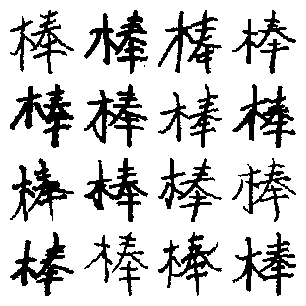 棒棒棒棒
棒棒棒棒
棒棒棒棒
棒棒棒棒